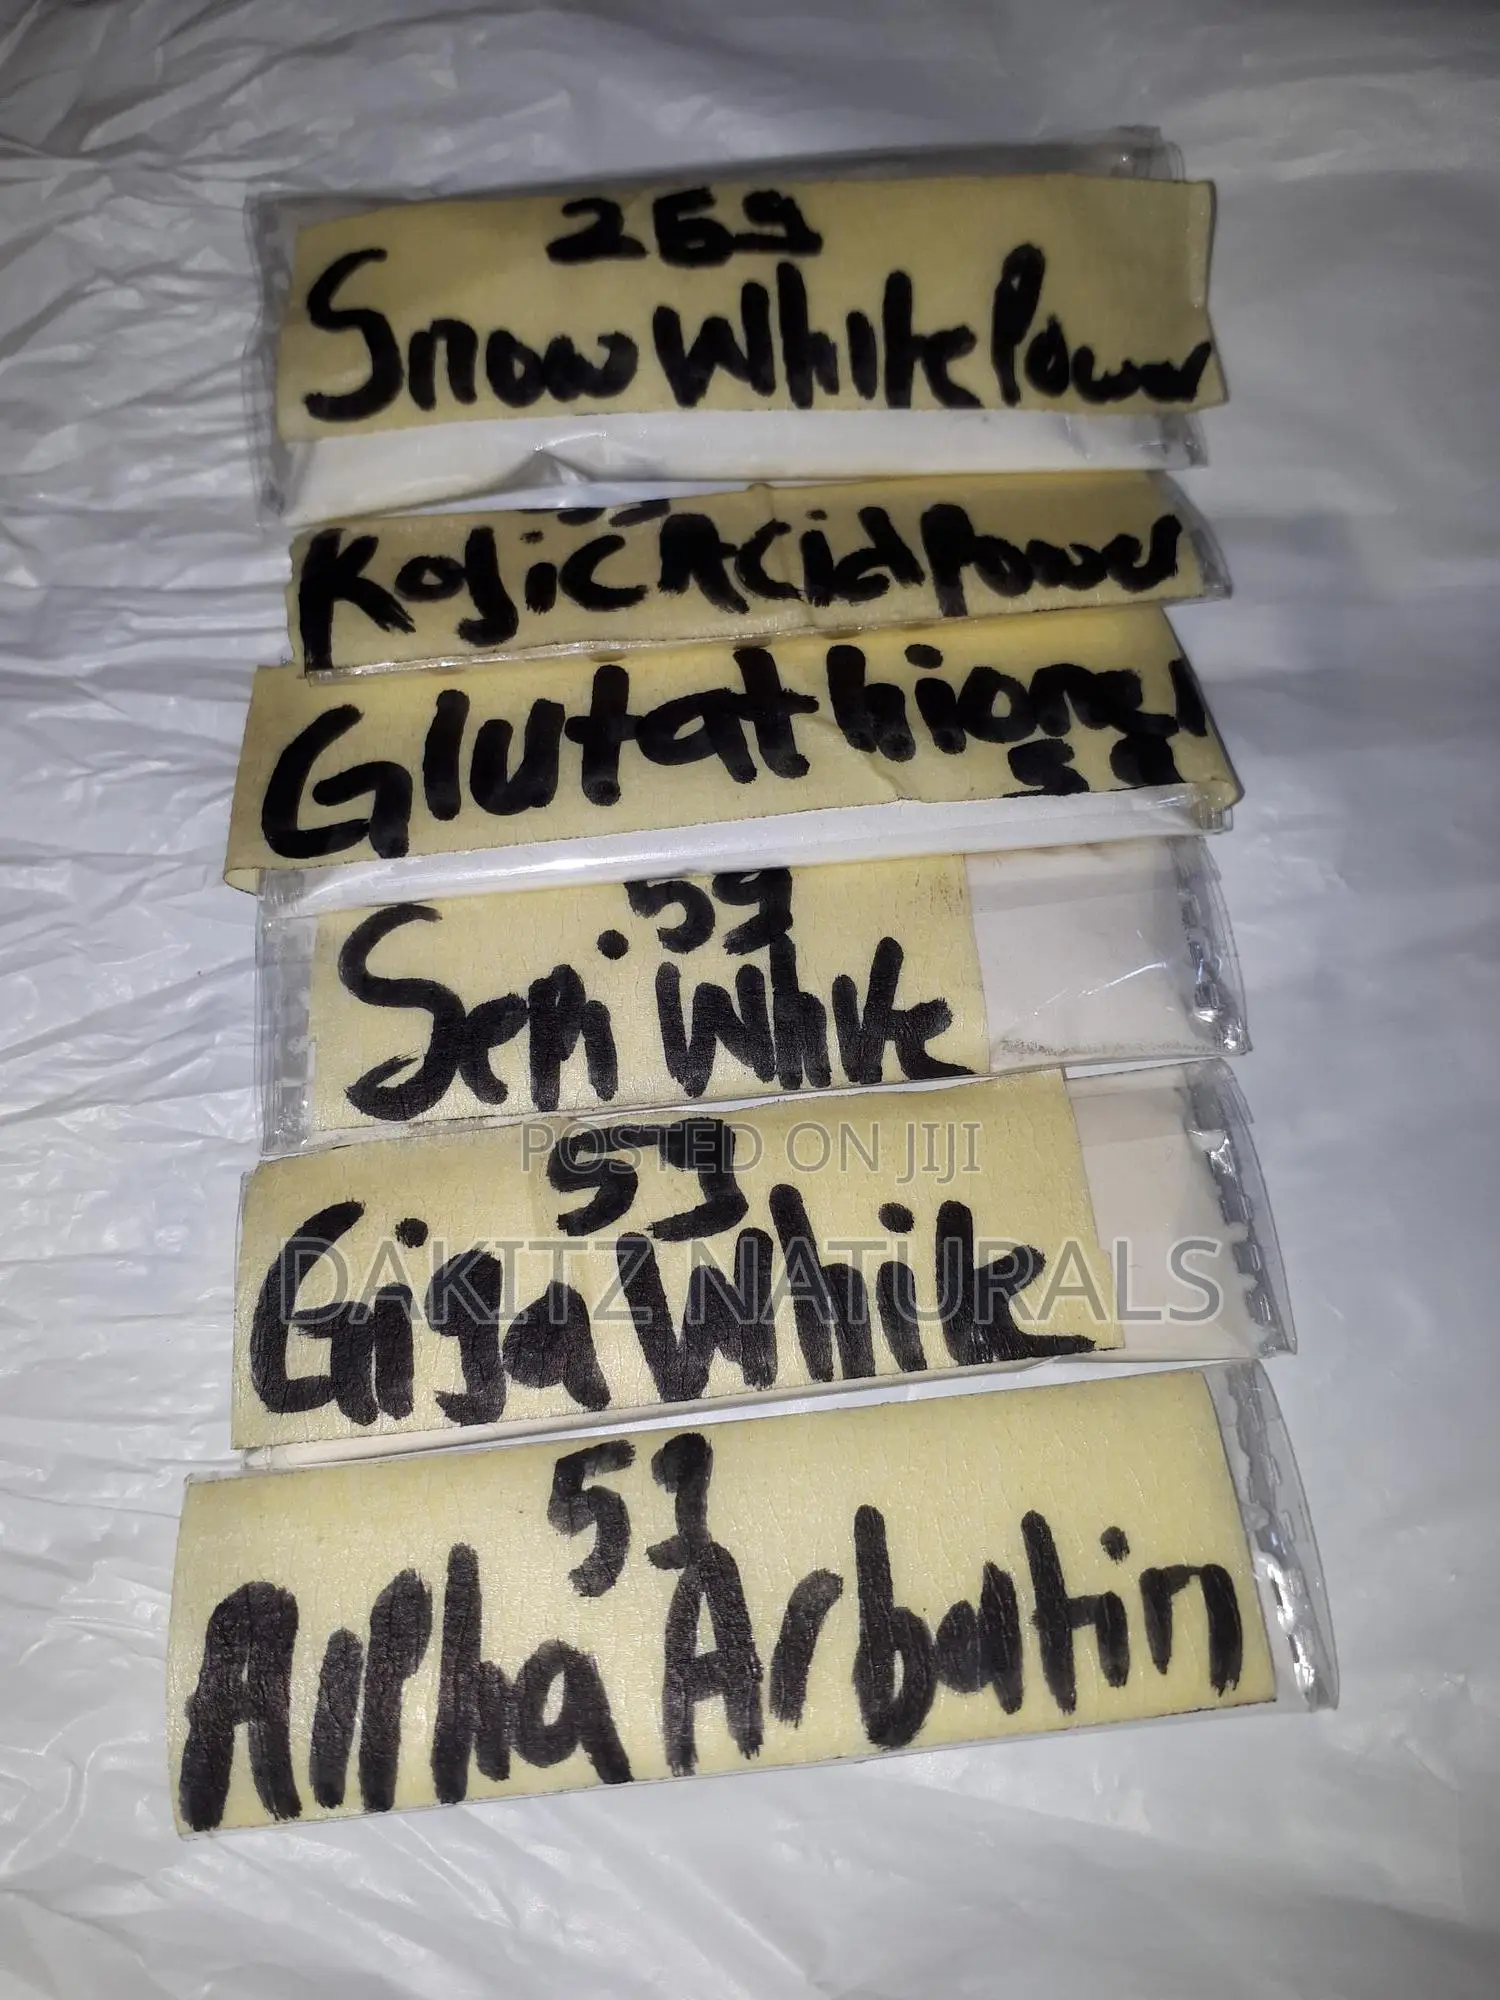 25g
Snow White Power
Kojic Acid Power
Glutathione
5g
5g
Sepi White
POSTED ON JIJI
5g
Giga White
DAKITZ NATURALS
5g
Alpha Arbatin